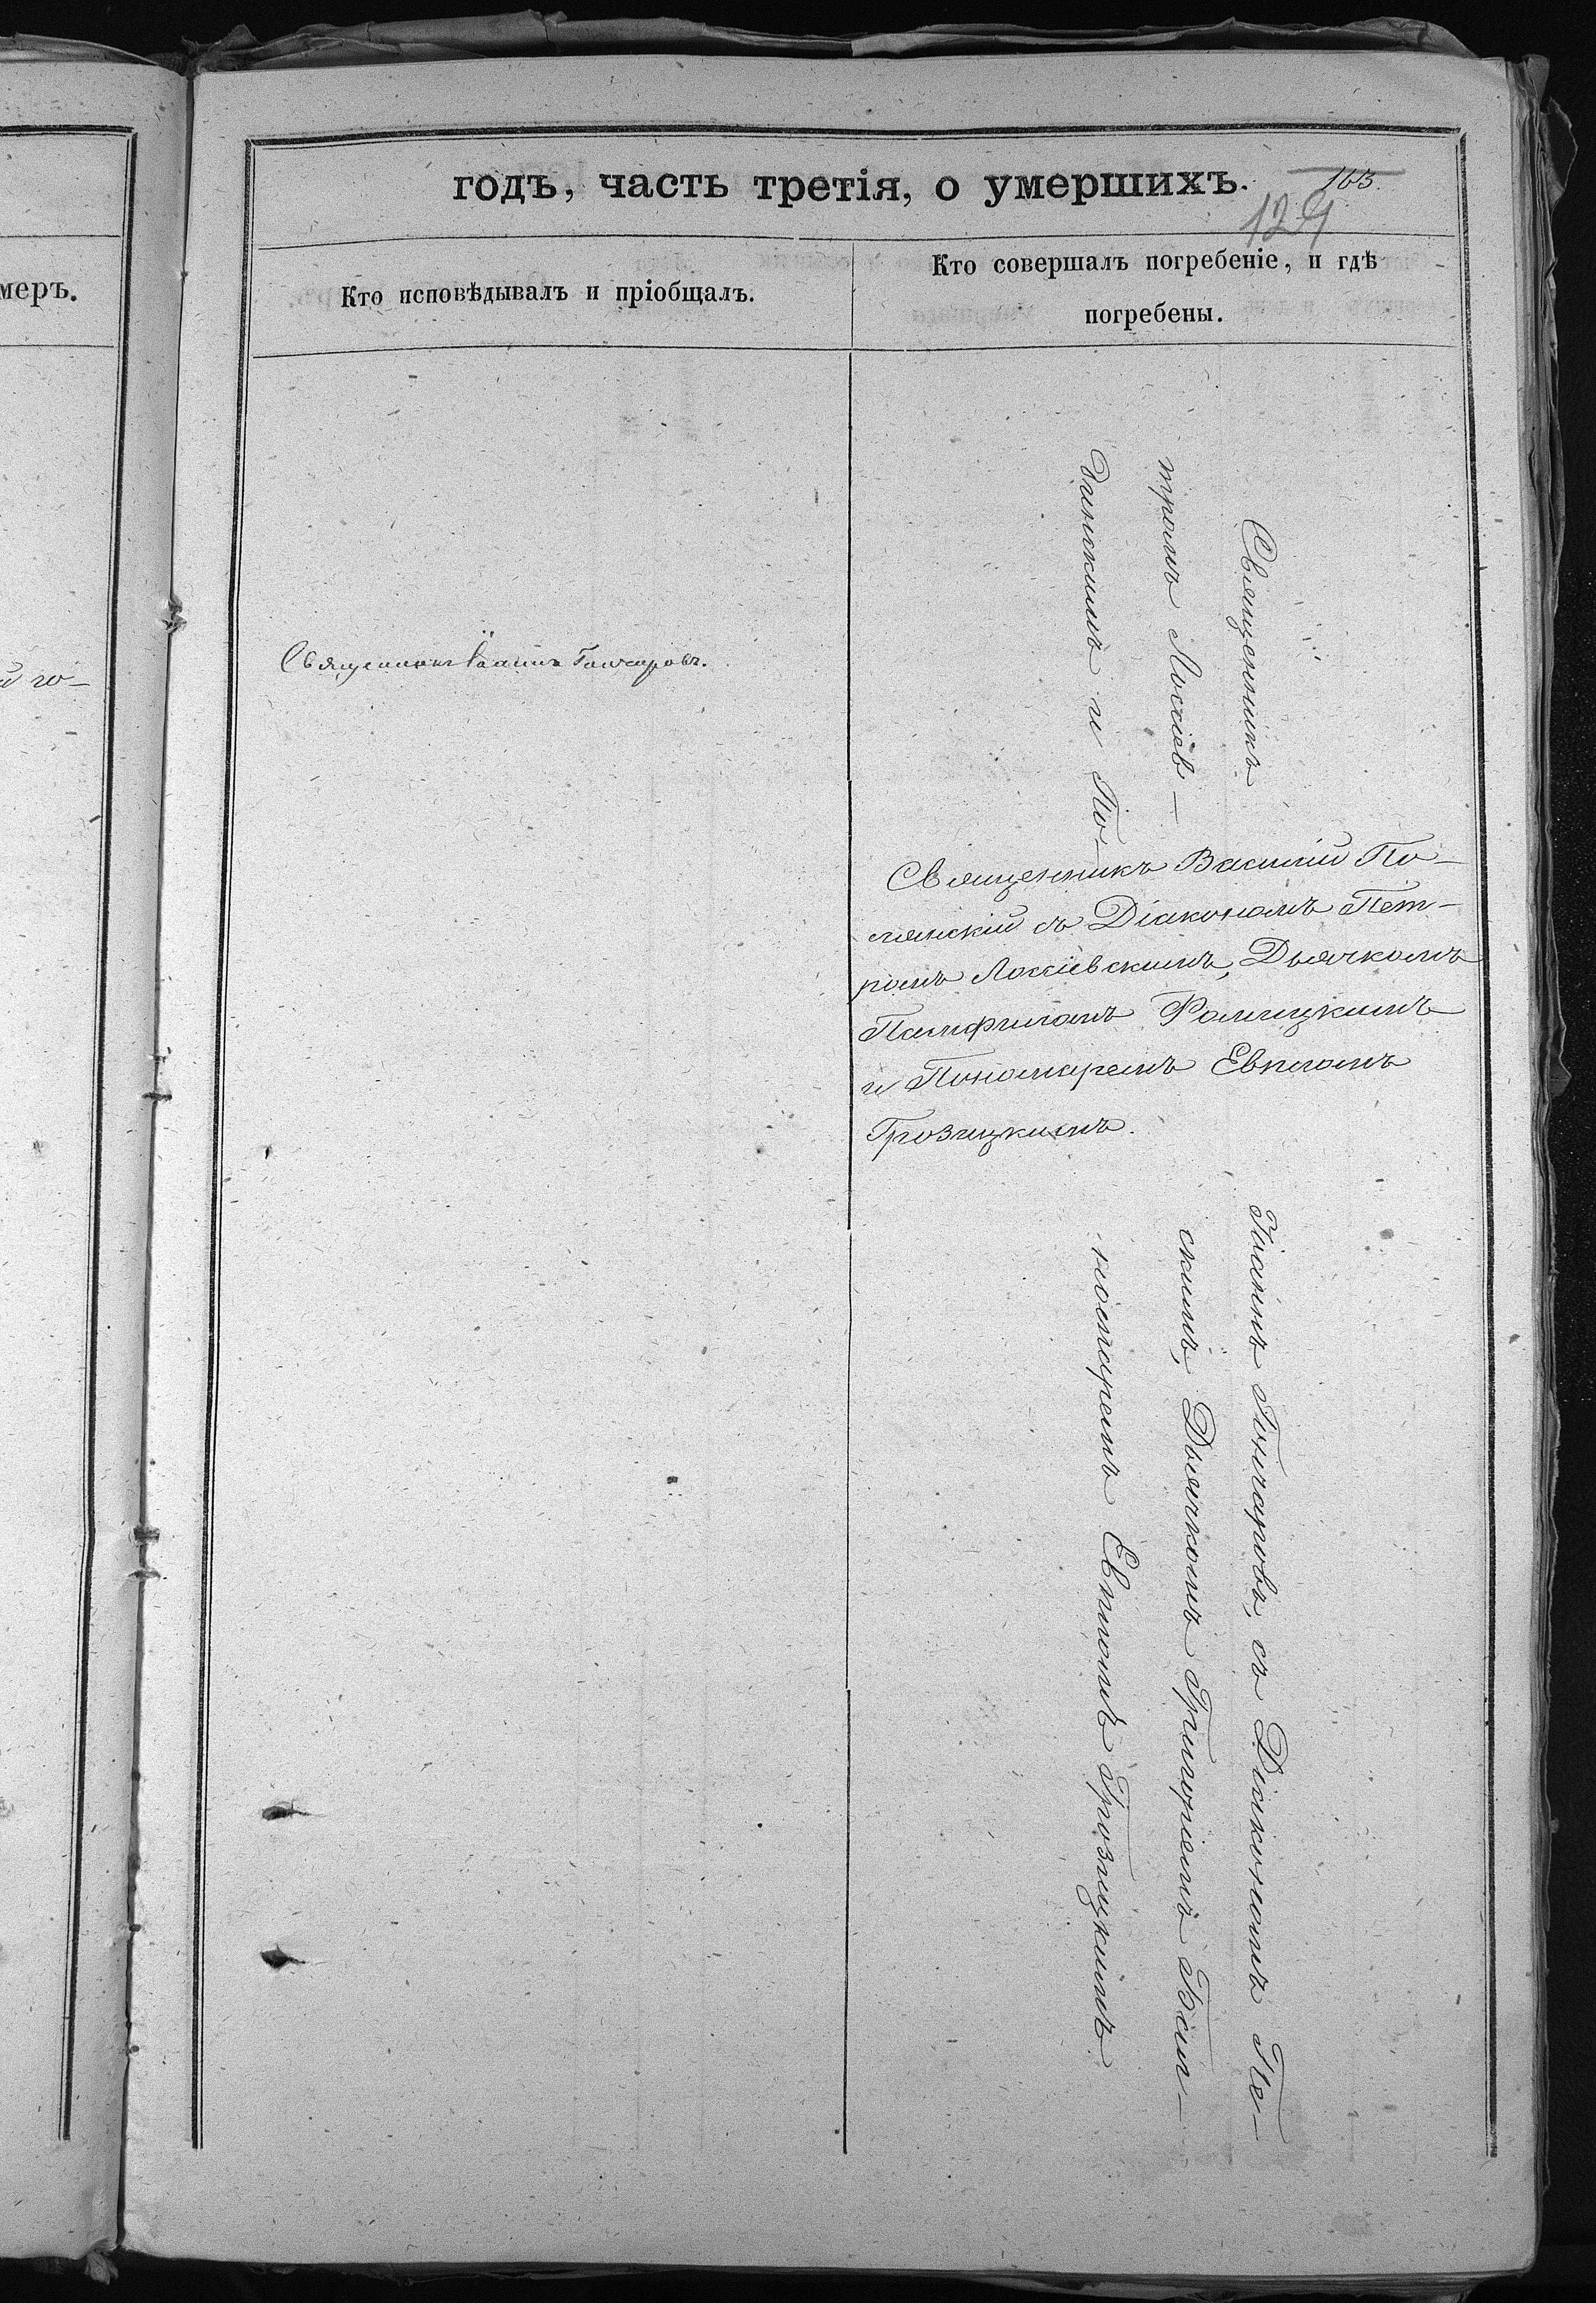 годъ, часть третія, о умершихъ.
163.
129
меръ.
Кто исповѣдывалъ и пріобщалъ.
Кто совершалъ погребеніе, и гдѣ
погребены.
й го-
Священникъ Іоаннъ Гончаровъ.
Священникъ
тромъ Лоссіев-
и По-
Священникъ Василій По-
лянскій съ Діакономъ Пет-
ромъ Лоссіевскимъ, Дьячкомъ
Памфиломъ
и Пономаремъ Евпломъ
Грозицкимъ.
Іоаннъ Гончаровъ, съ Діакономъ Пе-
скимъ, Дьячкомъ Григоріемъ
номаремъ Евпломъ Грозицкимъ